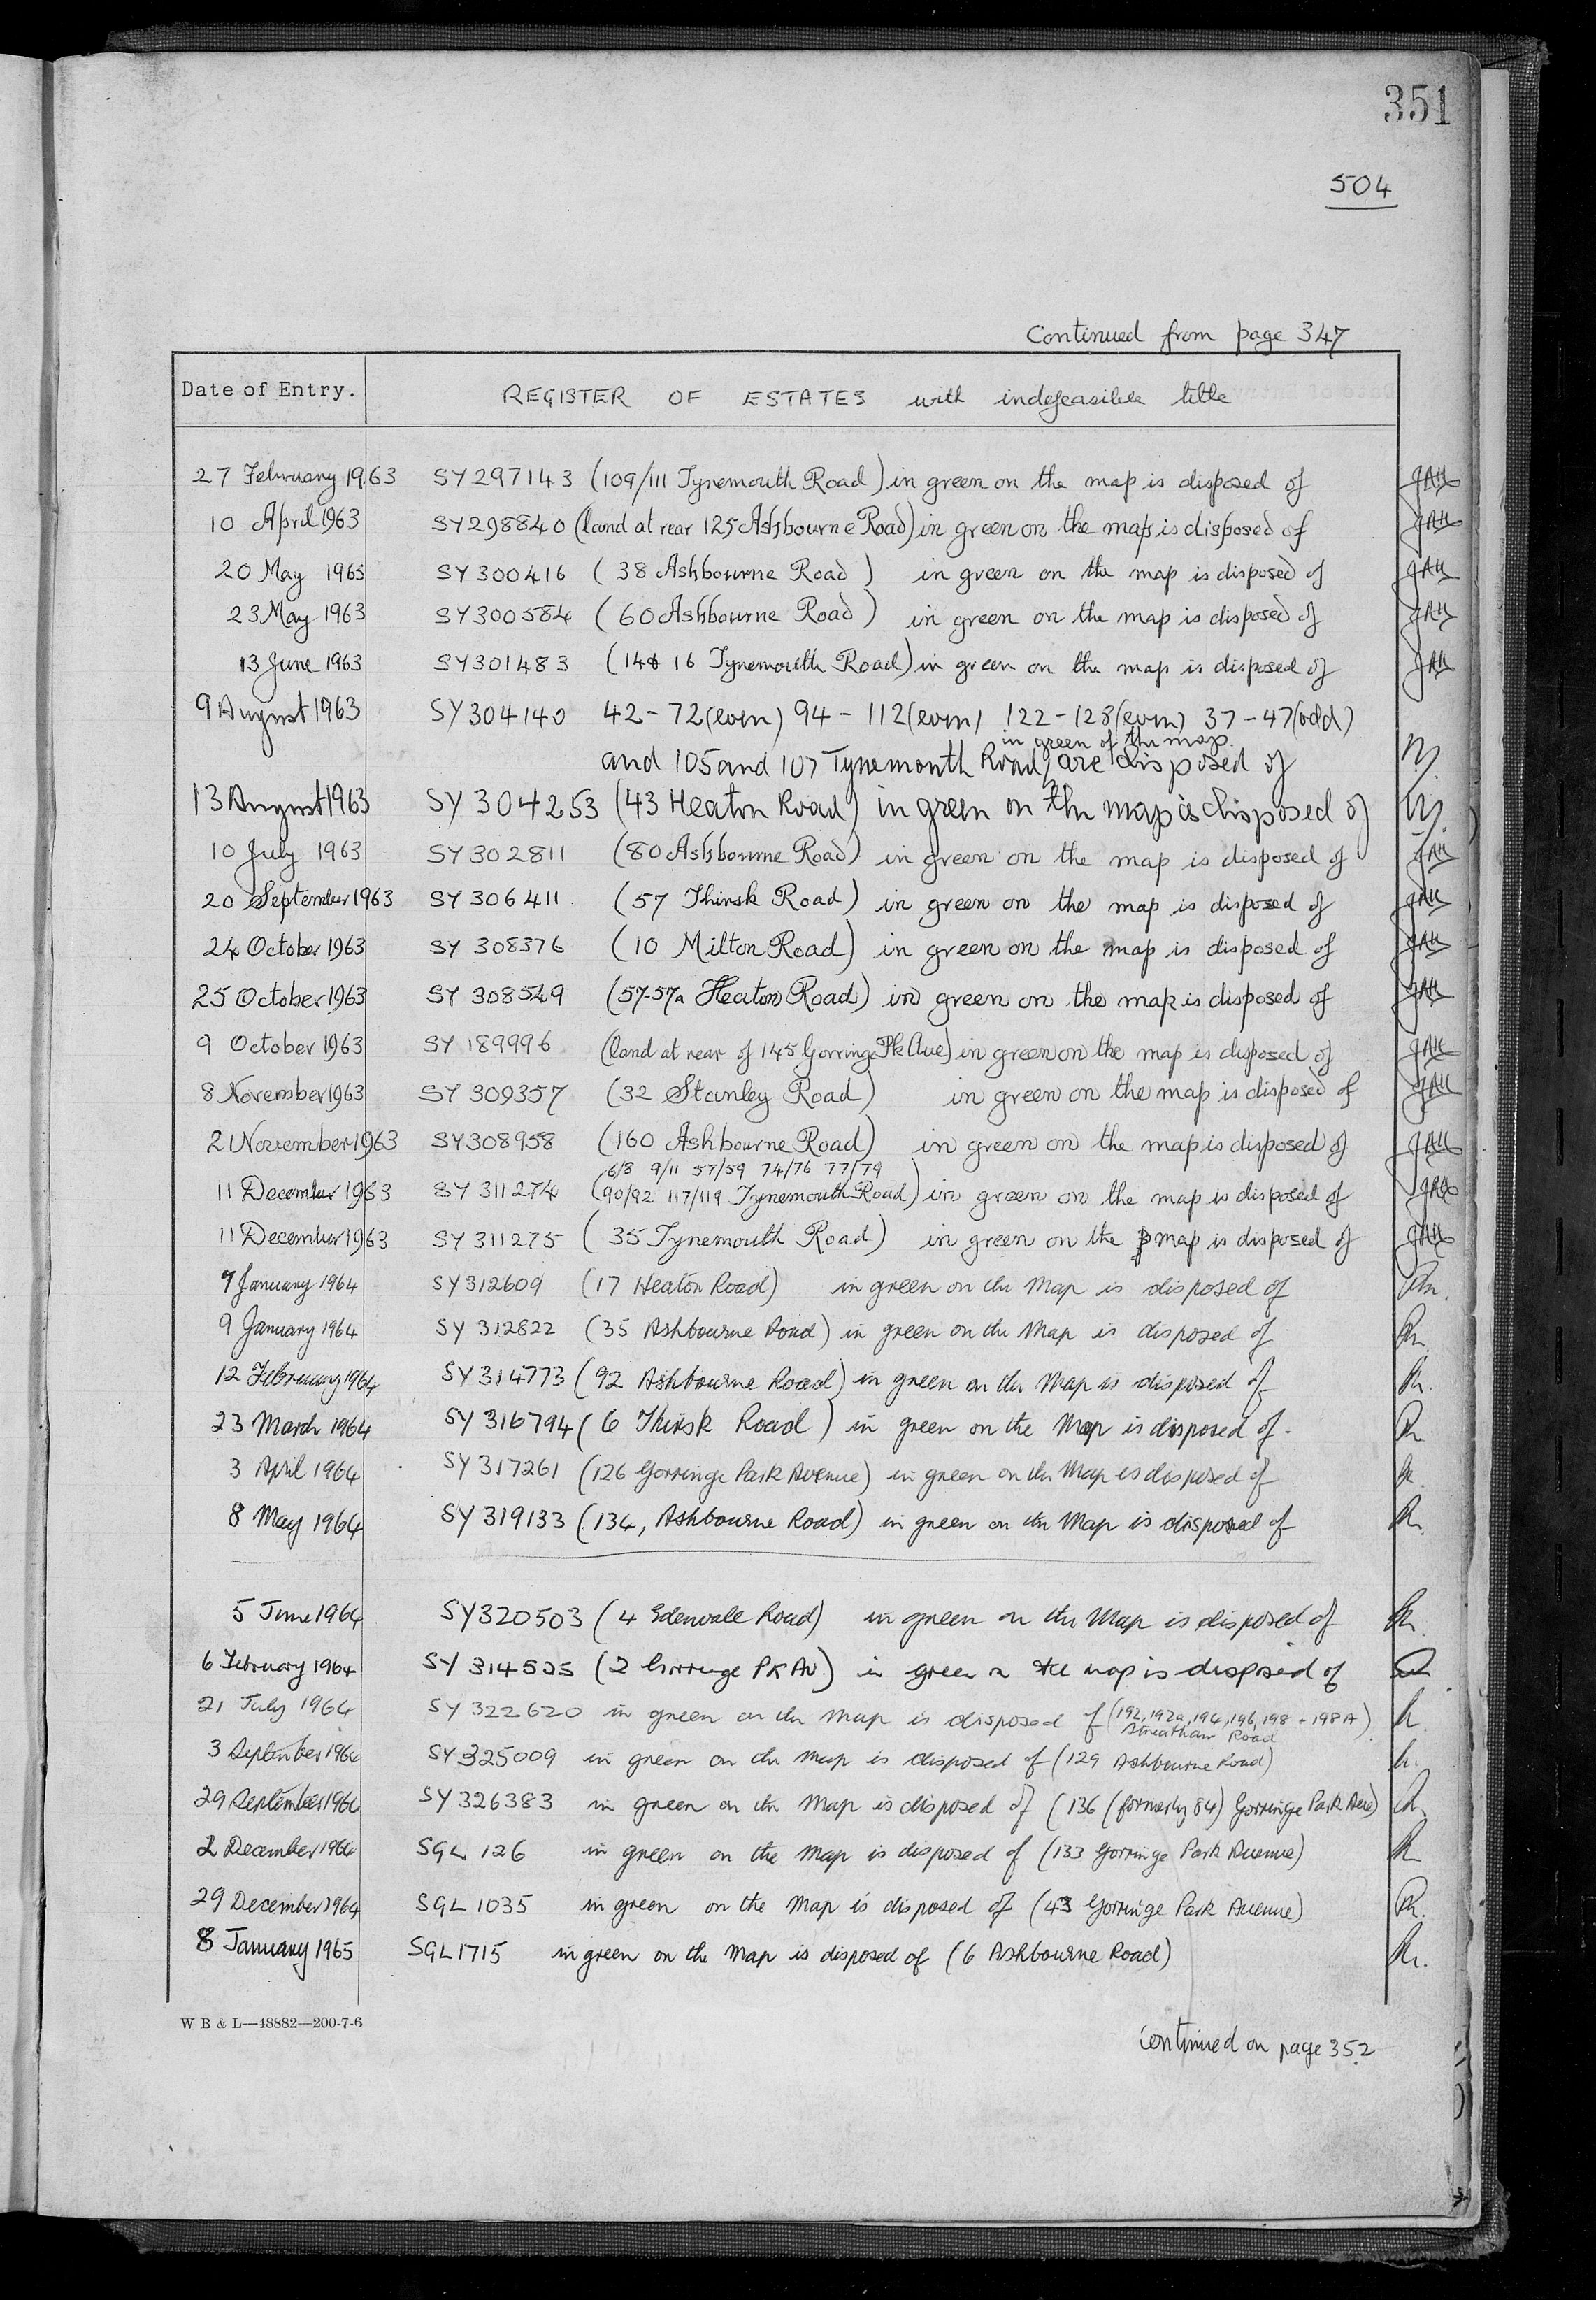 351
504
Continued from page 347
Date of Entry. REGISTER OF ESTATES with indefeasible title
27 February 1963 SY297143 (109/111 Tynemouth Road) in green on the map is disposed of JAH
10 April 1963 SY298840 (land at rear 125 Ashbourne Road) in green on the map is disposed of JAH
20 May 1963 SY300416 (38 Ashbourne Road) in green on the map is disposed of JAH
23 May 1963 SY300584 (60 Ashbourne Road) in green on the map is disposed of JAH
13 June 1963 SY301483 (14 & 16 Tynemouth Road) in green on the map is disposed of JAH
9 August 1963 SY304140 42-72(even) 94-112(even) 122-128(even) 37-47(odd)
in green of the map
and 105 and 107 Tynemouth Road, are disposed of
13 August 1963 SY304253 (43 Heaton Road) in green on the map is disposed of
10 July 1963 SY302811 (80 Ashbourne Road) in green on the map is disposed of JAH
20 September 1963 SY306411 (57 Thirsk Road) in green on the map is disposed of JAH
24 October 1963 SY308376 (10 Milton Road) in green on the map is disposed of JAH
25 October 1963 SY308549 (57-57a Heaton Road) in green on the map is disposed of JAH
9 October 1963 SY189996 (land at rear of 145 Gorringe Pk Ave) in green on the map is disposed of JAH
8 November 1963 SY309357 (32 Stanley Road) in green on the map is disposed of JAH
21 November 1963 SY308958 (160 Ashbourne Road) in green on the map is disposed of JAH
6/8 9/11 57/59 74/76 77/79
11 December 1963 SY311274 (90/92 117/119 Tynemouth Road) in green on the map is disposed of JAH
11 December 1963 SY311275 (35 Tynemouth Road) in green on the map is disposed of JAH
7 January 1964 SY312609 (17 Heaton Road) in green on the Map is disposed of
9 January 1964 SY312822 (35 Ashbourne Road) in green on the Map is disposed of
12 February 1964 SY314773 (92 Ashbourne Road) in green on the Map is disposed of
23 March 1964 SY316794 (6 Thirsk Road) in green on the Map is disposed of.
3 April 1964 SY317261 (126 Gorringe Park Avenue) in green on the Map is disposed of
8 May 1964 SY319133 (134, Ashbourne Road) in green on the Map is disposed of
5 June 1964 SY320503 (4 Edenvale Road) in green on the Map is disposed of
6 February 1964 SY314525 (2 Gorringe Pk Av.) in green on the map is disposed of
21 July 1964 SY322620 in green on the Map is disposed of (192, 192a, 194, 196, 198 + 198A)
Streatham Road
3 September 1964 SY325009 in green on the Map is disposed of (129 Ashbourne Road)
29 September 1964 SY326383 in green on the Map is disposed of (136 (formerly 84) Gorringe Park Ave)
2 December 1964 SGL 126 in green on the Map is disposed of (133 Gorringe Park Avenue)
29 December 1964 SGL 1035 in green on the Map is disposed of (43 Gorringe Park Avenue)
8 January 1965 SGL1715 in green on the Map is disposed of (6 Ashbourne Road)
W B & L—48882—200-7-6
continued on page 352